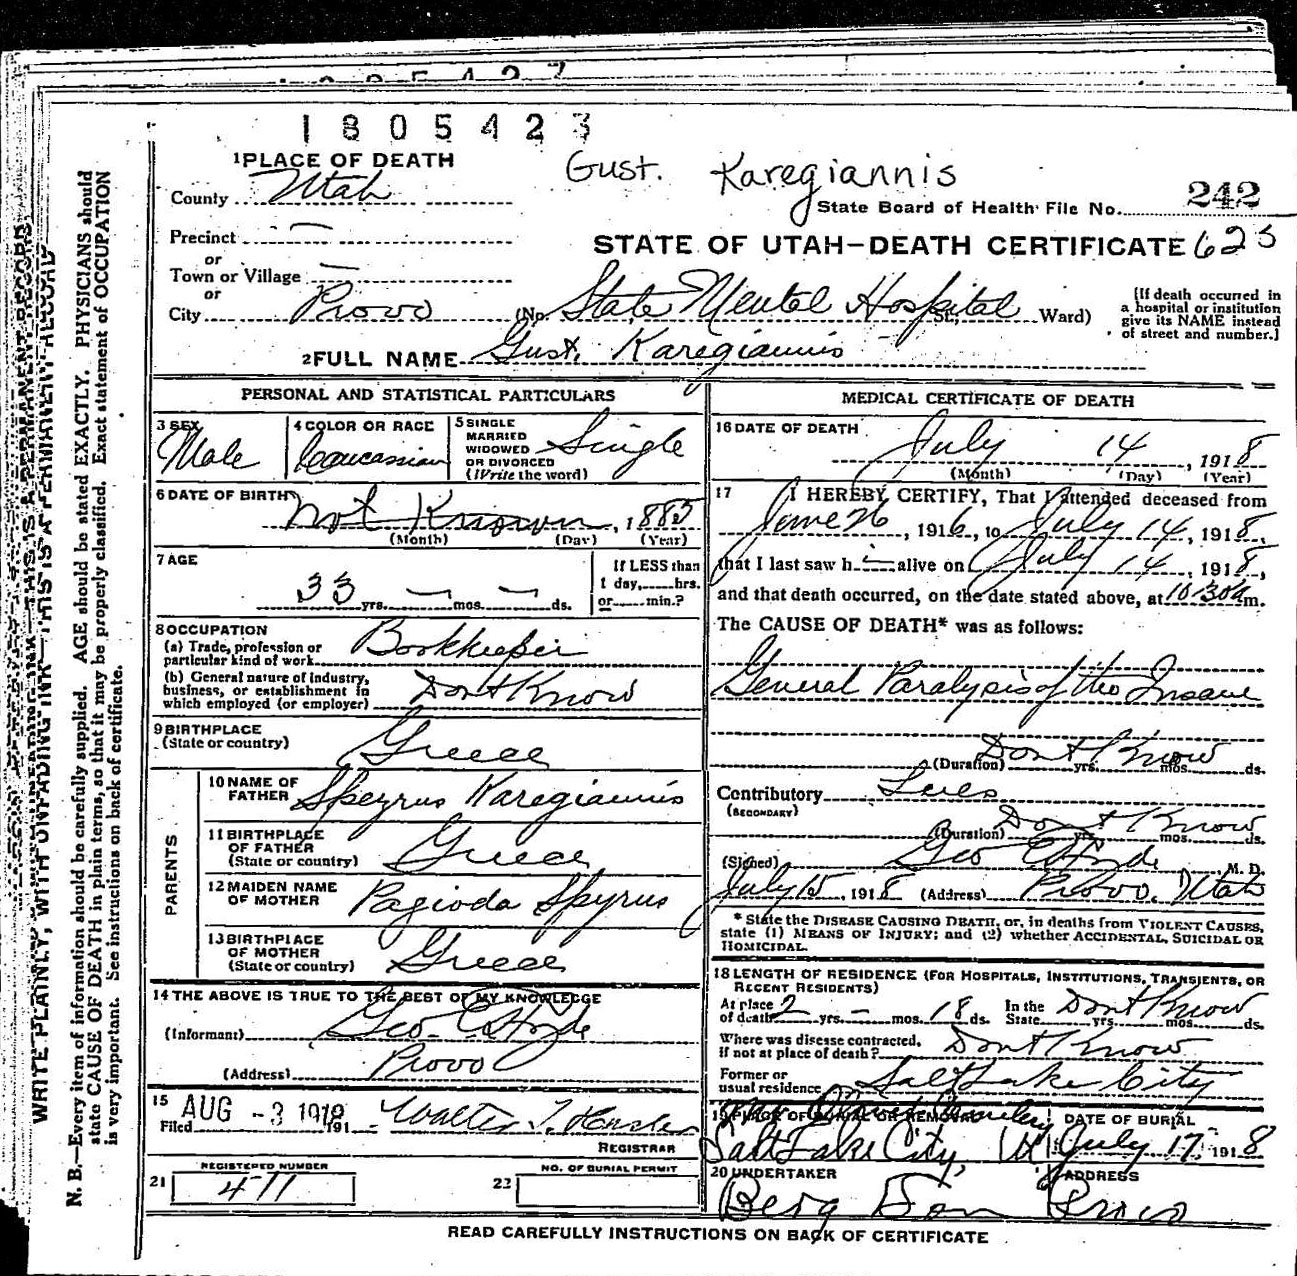 1805423
Gust. Karegiannis
1 PLACE OF DEATH
County Utah
State Board of Health File No. 242
Precinct —
STATE OF UTAH—DEATH CERTIFICATE 623
or
Town or Village —
or
City Provo (No. State Mental Hospital St., Ward)
[If death occurred in
a hospital or institution
give its NAME instead
of street and number.]
2 FULL NAME Gust. Karegiannis
PERSONAL AND STATISTICAL PARTICULARS
3 SEX
Male
4 COLOR OR RACE
Caucassian
5 SINGLE
MARRIED
WIDOWED
OR DIVORCED
(Write the word)
Single
6 DATE OF BIRTH
Not Known, 1885
(Month) (Day) (Year)
7 AGE
33 yrs. — mos. — ds.
If LESS than
1 day, hrs.
or min.?
8 OCCUPATION
(a) Trade, profession or
particular kind of work Bookkeeper
(b) General nature of industry,
business, or establishment in
which employed (or employer) Dont Know
9 BIRTHPLACE
(State or country) Greece
PARENTS
10 NAME OF
FATHER Speyrus Karegiannis
11 BIRTHPLACE
OF FATHER
(State or country) Greece
12 MAIDEN NAME
OF MOTHER Pagioda Spyrus
13 BIRTHPLACE
OF MOTHER
(State or country) Greece
14 THE ABOVE IS TRUE TO THE BEST OF MY KNOWLEDGE
(Informant) Geo. E. Hyde
(Address) Provo
15
Filed AUG -3 1918 191 Walter T. Hasler
REGISTRAR
REGISTERED NUMBER
21 411
NO. OF BURIAL PERMIT
22
MEDICAL CERTIFICATE OF DEATH
16 DATE OF DEATH
July 14, 1918
(Month) (Day) (Year)
17 I HEREBY CERTIFY, That I attended deceased from
June 26, 1916, to July 14, 1918,
that I last saw h i— alive on July 14, 1918,
and that death occurred, on the date stated above, at 10:30a m.
The CAUSE OF DEATH* was as follows:
General Paralysis of the Insane
(Duration) Dont Know yrs. mos. ds.
Contributory Lues
(SECONDARY)
(Duration) Dont Know yrs. mos. ds.
(Signed) Geo E Hyde M. D.
July 15, 1918 (Address) Provo, Utah
* State the DISEASE CAUSING DEATH, or, in deaths from VIOLENT CAUSES,
state (1) MEANS OF INJURY; and (2) whether ACCIDENTAL, SUICIDAL OR
HOMICIDAL.
18 LENGTH OF RESIDENCE (FOR HOSPITALS, INSTITUTIONS, TRANSIENTS, OR
RECENT RESIDENTS)
At place
of death 2 yrs. — mos. 18 ds.
In the
State Dont Know yrs. mos. ds.
Where was disease contracted,
if not at place of death? Dont Know
Former or
usual residence Salt Lake City
19 PLACE OF BURIAL OR REMOVAL
Salt Lake City, Ut
DATE OF BURIAL
July 17, 1918
20 UNDERTAKER
Berg
ADDRESS
Provo
READ CAREFULLY INSTRUCTIONS ON BACK OF CERTIFICATE
WRITE PLAINLY, WITH UNFADING INK—THIS IS A PERMANENT RECORD
N. B.—Every item of information should be carefully supplied. AGE should be stated EXACTLY. PHYSICIANS should
state CAUSE OF DEATH in plain terms, so that it may be properly classified. Exact statement of OCCUPATION
is very important. See instructions on back of certificate.